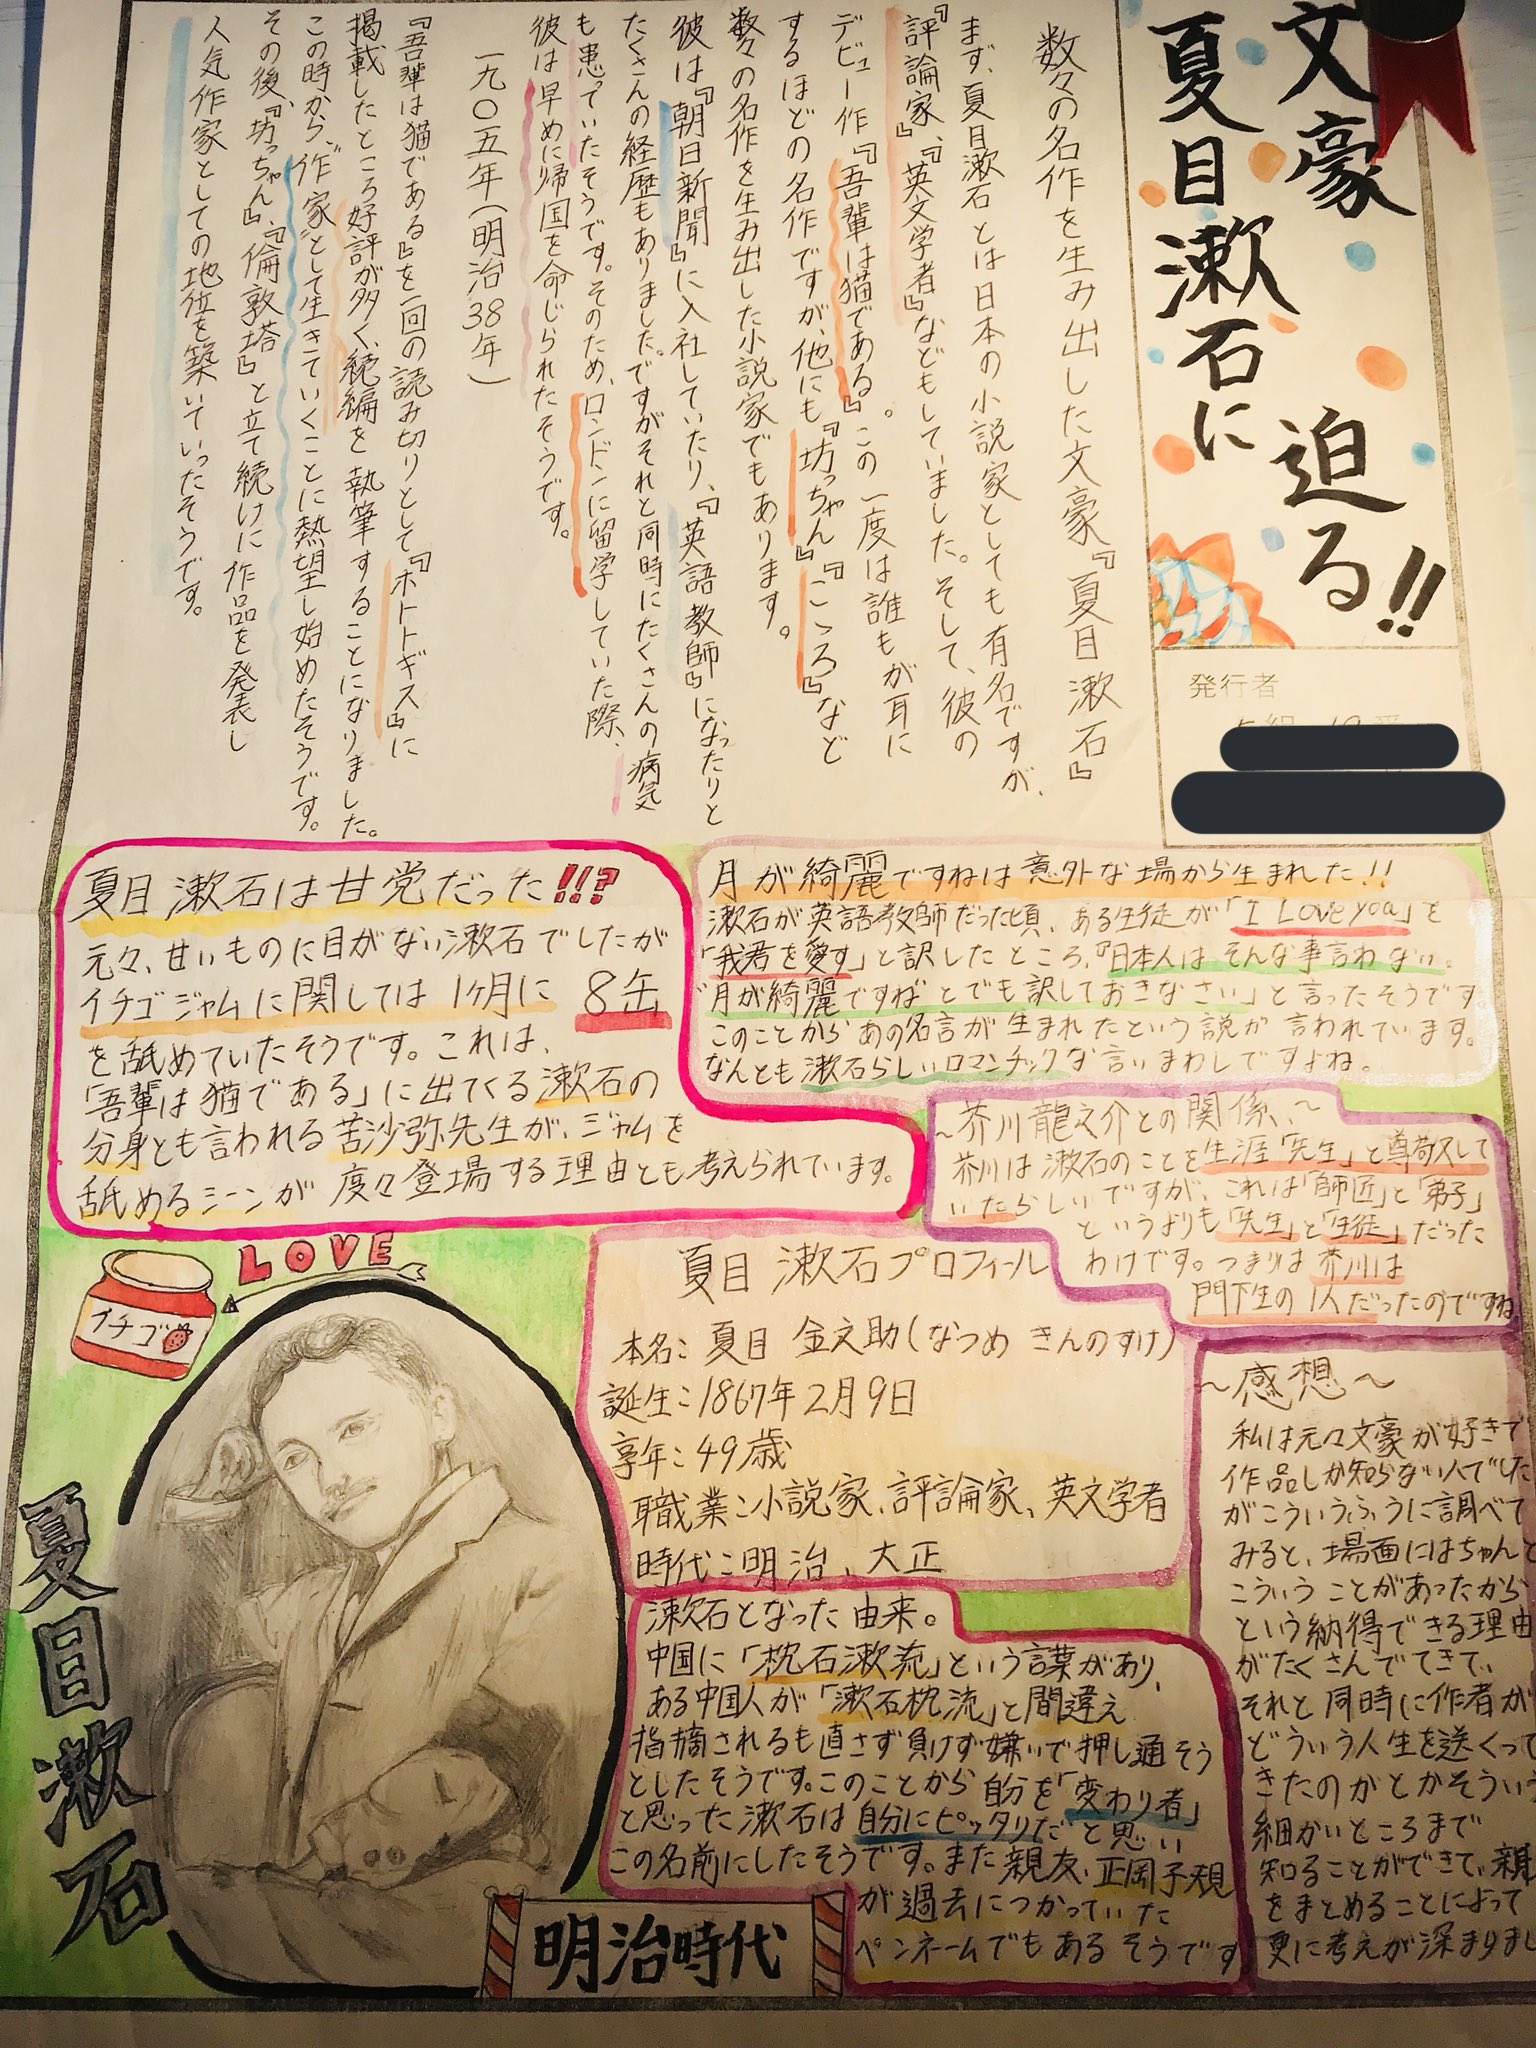 文豪
夏目漱石に
迫る!!
発行者
数々の名作を生み出した文豪『夏目漱石』
まず、夏目漱石とは日本の小説家としても有名ですが、
『評論家』、『英文学者』などもしていました。そして、彼の
デビュー作『吾輩は猫である』。この一度は誰もが耳に
するほどの名作ですが、他にも『坊っちゃん』『こころ』など
数々の名作を生み出した小説家でもあります。
彼は『朝日新聞』に入社していたり、『英語教師』になったりと
たくさんの経歴もありました。ですがそれと同時にたくさんの病気
も患っていたそうです。そのため、ロンドンに留学していた際、
彼は早めに帰国を命じられたそうです。
一九〇五年(明治38年)
『吾輩は猫である』を一回の読み切りとして『ホトトギス』に
掲載したところ好評が多く、続編を執筆することになりました。
この時から、"作家"として生きていくことに熱望し始めたそうです。
その後、『坊っちゃん』、『倫敦塔』と立て続けに作品を発表し
人気作家としての地位を築いていったそうです。
月が綺麗ですねは意外な場から生まれた!!
漱石が英語教師だった頃、ある生徒が「I Love you」を
「我君を愛す」と訳したところ、『日本人はそんな事言わない。
"月が綺麗ですね"とでも訳しておきなさい」と言ったそうです。
このことからあの名言が生まれたという説が言われています。
なんとも漱石らしいロマンチックな言いまわしですよね。
夏目漱石は甘党だった!!?
元々、甘いものに目がない漱石でしたが
イチゴジャムに関しては1ヶ月に 8缶
を舐めていたそうです。これは、
「吾輩は猫である」に出てくる漱石の
分身とも言われる苦沙弥先生が、ジャムを
舐めるシーンが度々登場する理由とも考えられています。
~芥川龍之介との関係、~
芥川は漱石のことを生涯「先生」と尊敬して
いたらしいですが、これは「師匠」と「弟子」
というよりも「先生」と「生徒」だった
わけです。つまりは芥川は
門下生の1人だったのですね
LOVE
イチゴ
夏目漱石プロフィール
本名:夏目 金之助(なつめ きんのすけ)
誕生:1867年2月9日
享年:49歳
職業:小説家、評論家、英文学者
時代:明治、大正
漱石となった由来。
中国に「枕石漱流」という言葉があり、
ある中国人が「漱石枕流」と間違え
指摘されるも直さず負けず嫌いで押し通そう
としたそうです。このことから自分を「変わり者」
と思った漱石は自分にピッタリだと思い
この名前にしたそうです。また親友、正岡子規
が過去につかっていた
ペンネームでもあるそうです
~感想~
私は元々文豪が好きで
作品しか知らない人でした
がこういうふうに調べて
みると、場面にはちゃんと
こういうことがあったから
という納得できる理由
がたくさんでてきて、
それと同時に作者が
どういう人生を送くって
きたのかとかそういう
細かいところまで
知ることができて、
をまとめることによって
更に考えが深まりまし
夏目漱石
明治時代